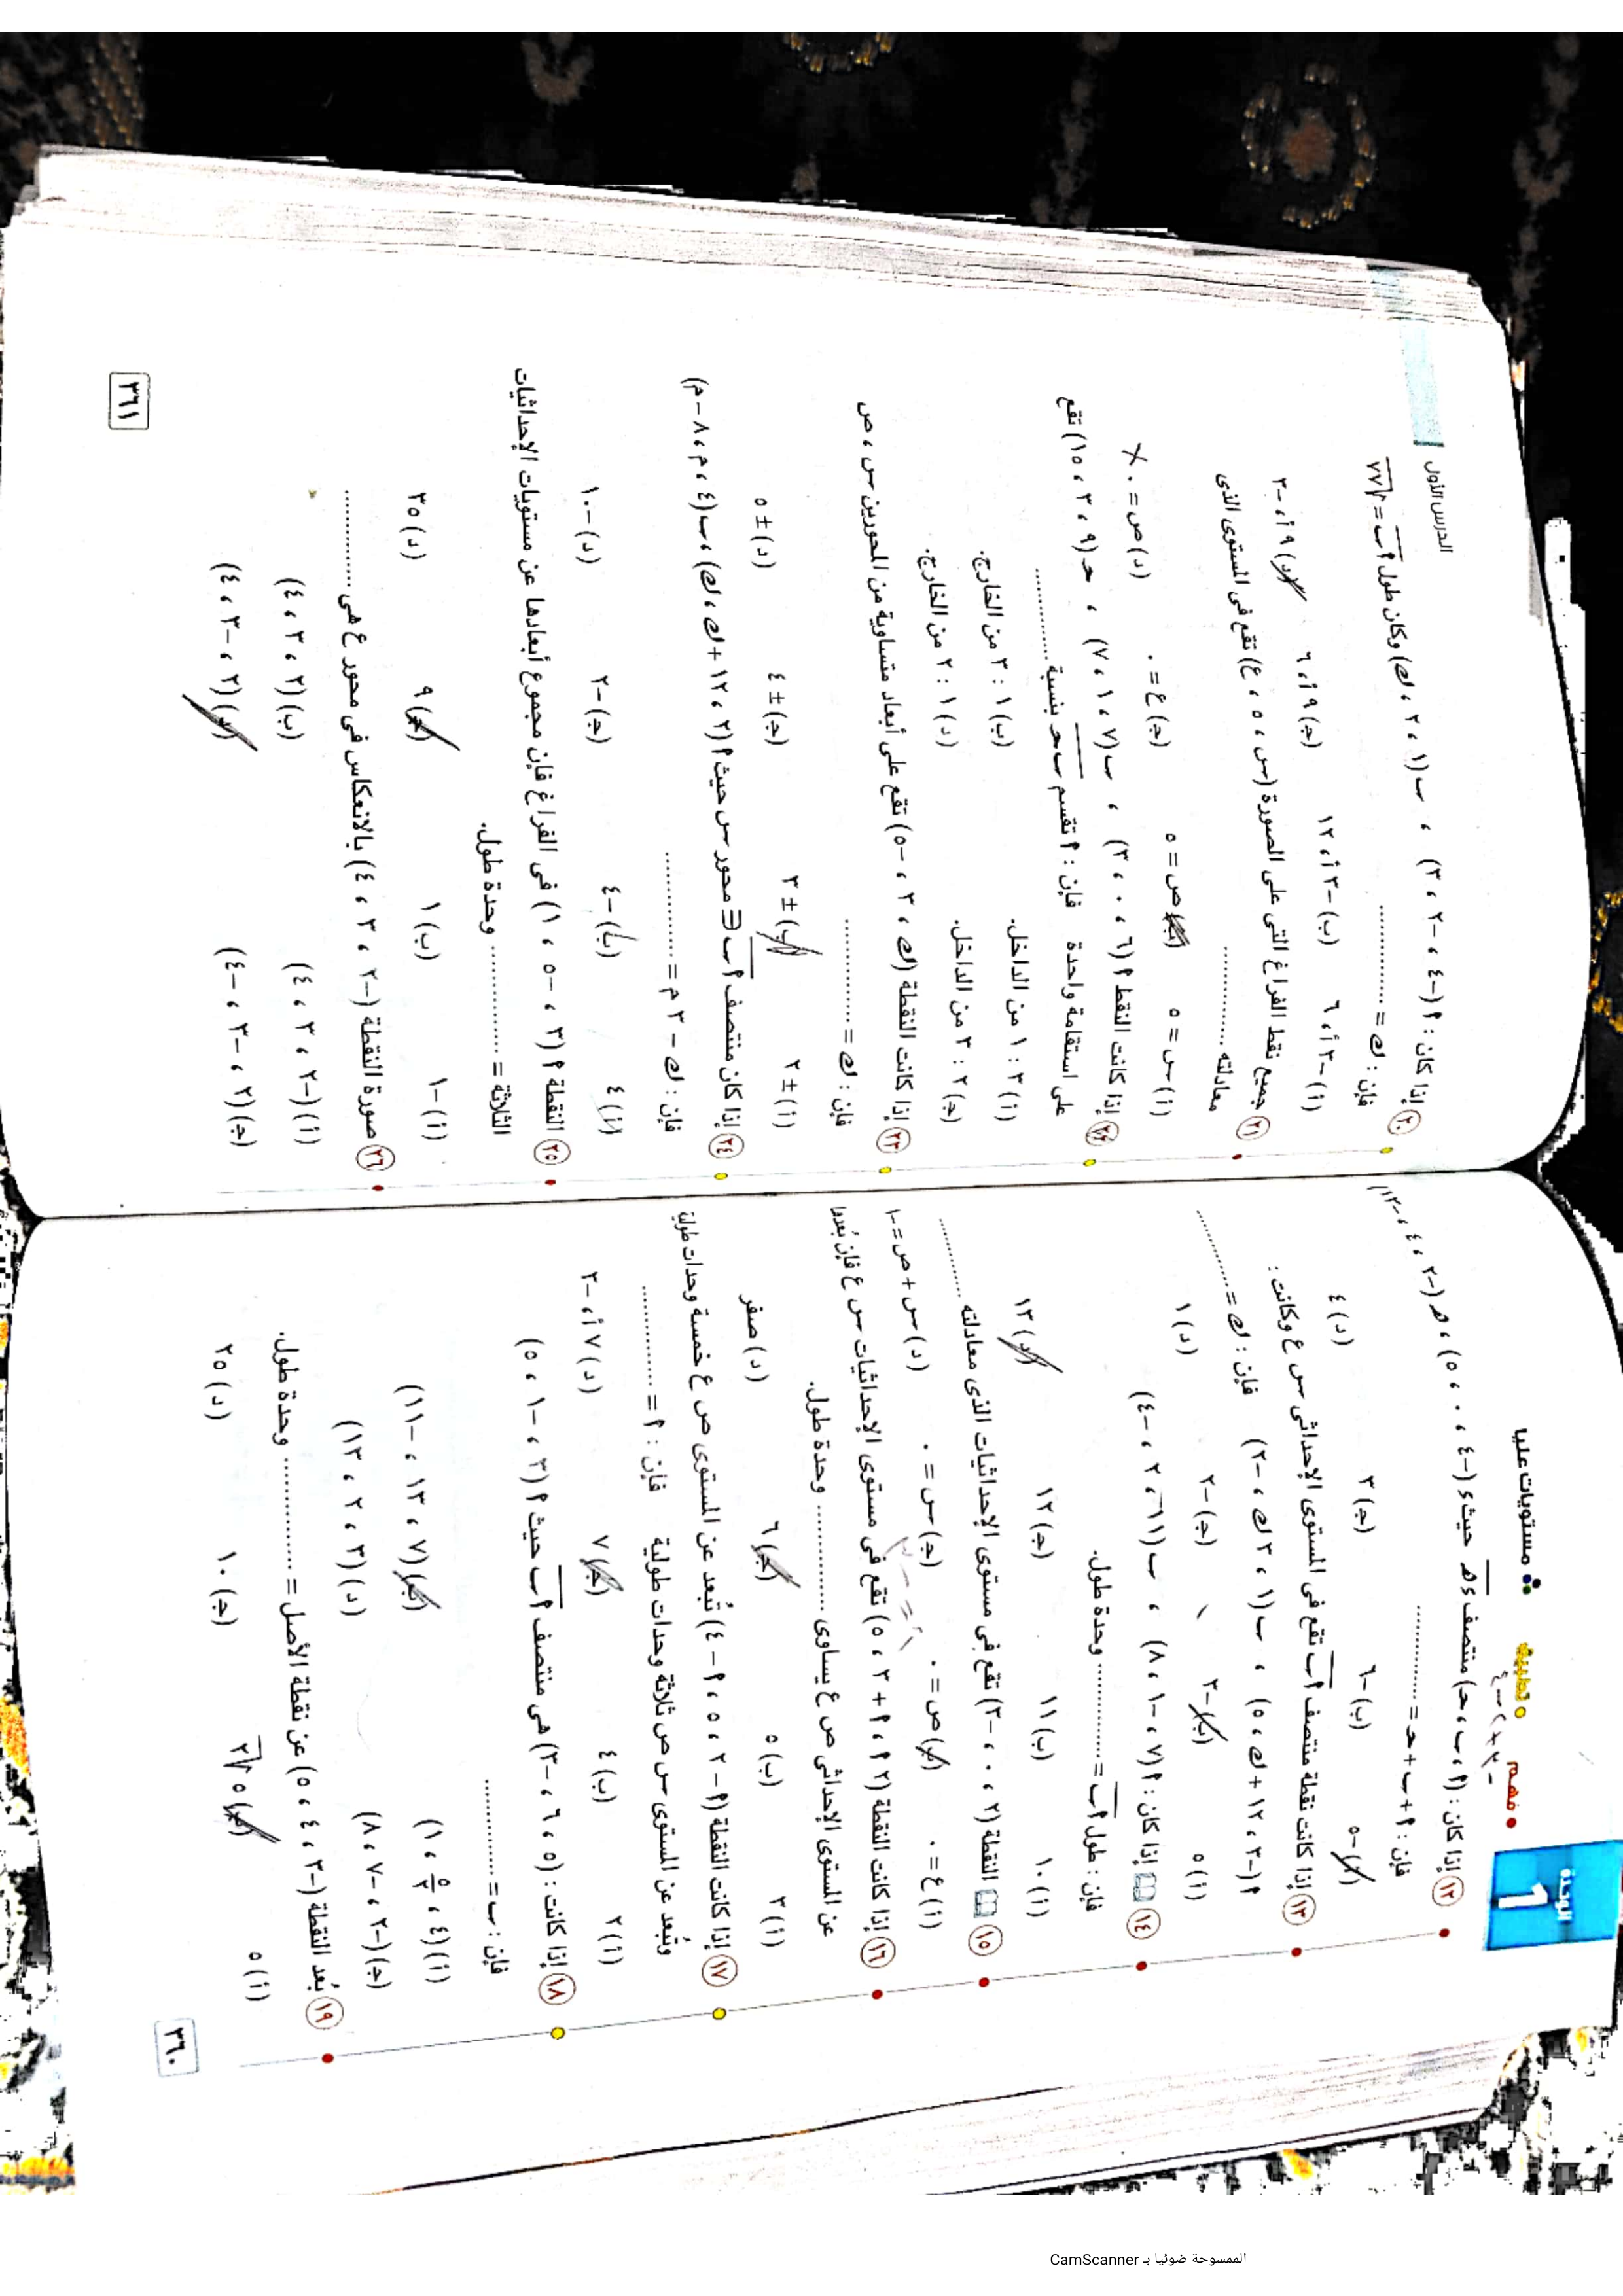 الوحدة
1
• فهم • تطبيق • مستويات عليا
١٢ إذا كان : (أ ، ب ، ح) منتصف ء ه حيث ء (-٤ ، ٠ ، ٥) ، ه (-٢ ، ٤ ، -١٢)
فإن : أ + ب + ح = ............
(أ) -٥ (ب) -٦ (ج) ٣ (د) ٤
١٣ إذا كانت نقطة منتصف أ ب تقع فى المستوى الإحداثى س ع وكانت :
أ (-٣ ، ١٢ + ك ، ٥) ، ب (١ ، ٣ ك ، -٢) فإن : ك = ............
(أ) ٥ (ب) -٣ (ج) -٢ (د) ١
١٤ إذا كان : أ (٧ ، -١ ، ٨) ، ب (١١ ، ٢ ، -٤)
فإن : طول أ ب = ............ وحدة طول.
(أ) ١٠ (ب) ١١ (ج) ١٢ (د) ١٣
١٥ النقطة (٢ ، ٠ ، -٣) تقع فى مستوى الإحداثيات الذى معادلته ............
(أ) ع = ٠ (ب) ص = ٠ (ج) س = ٠ (د) س + ص = -١
١٦ إذا كانت النقطة (٢ أ ، أ + ٣ ، ٥) تقع فى مستوى الإحداثيات س ع فإن بُعدها
عن المستوى الإحداثى ص ع يساوى ............ وحدة طول.
(أ) ٣ (ب) ٥ (ج) ٦ (د) صفر
١٧ إذا كانت النقطة (أ - ٢ ، ٥ ، أ - ٤) تُبعد عن المستوى ص ع خمسة وحدات طولية
وتُبعد عن المستوى س ص ثلاثة وحدات طولية فإن : أ = ............
(أ) ٢ (ب) ٤ (ج) ٧ (د) ٧ أ، -٣
١٨ إذا كانت : (٥ ، ٦ ، -٣) هى منتصف أ ب حيث أ (٣ ، -١ ، ٥)
فإن : ب = ............
(أ) (٤ ، ٥/٢ ، ١) (ب) (٧ ، ١٣ ، -١١)
(ج) (-٢ ، -٧ ، ٨) (د) (٣ ، ٢ ، ١٣)
١٩ بُعد النقطة (-٣ ، ٤ ، ٥) عن نقطة الأصل = ............ وحدة طول.
(أ) ٥ (ب) ٥√٢ (ج) ١٠ (د) ٢٥
٣٦٠
الدرس الأول
٢٠ إذا كان : أ (-٤ ، -٢ ، ٣) ، ب (١ ، ٢ ، ك) وكان طول أ ب = √٧٧
فإن : ك = ............
(أ) -٣ أ، ٦ (ب) -٣ أ، ١٢ (ج) ٩ أ، ٦ (د) ٩ أ، -٣
٢١ جميع نقط الفراغ التى على الصورة (س ، ٥ ، ع) تقع فى المستوى الذى
معادلته ............
(أ) س = ٥ (ب) ص = ٥ (ج) ع = ٠ (د) ص = ٠
٢٢ إذا كانت النقط أ (٦ ، ٠ ، ٣) ، ب (٧ ، ١ ، ٧) ، ح (٩ ، ٣ ، ١٥) تقع
على استقامة واحدة فإن : أ تقسم ب ح بنسبة ............
(أ) ٣ : ١ من الداخل. (ب) ١ : ٣ من الخارج.
(ج) ٢ : ٣ من الداخل. (د) ١ : ٢ من الخارج.
٢٣ إذا كانت النقطة (ك ، ٣ ، -٥) تقع على أبعاد متساوية من المحورين س ، ص
فإن : ك = ............
(أ) ± ٢ (ب) ± ٣ (ج) ± ٤ (د) ± ٥
٢٤ إذا كان منتصف أ ب ∈ محور س حيث أ (٢ ، ١٢ + ك ، ك) ، ب (٤ ، م ، ٨ - م)
فإن : ك - ٣ م = ............
(أ) ٤ (ب) -٤ (ج) -٢ (د) -١٠
٢٥ النقطة أ (٣ ، -٥ ، ١) فى الفراغ فإن مجموع أبعادها عن مستويات الإحداثيات
الثلاثة = ............ وحدة طول.
(أ) -١ (ب) ١ (ج) ٩ (د) ٣٥
٢٦ صورة النقطة (-٢ ، ٣ ، ٤) بالانعكاس فى محور ع هى ............
(أ) (-٢ ، ٣ ، ٤) (ب) (٢ ، ٣ ، ٤)
(ج) (٢ ، -٣ ، -٤) (د) (٢ ، -٣ ، ٤)
٣٦١
الممسوحة ضوئيا بـ CamScanner